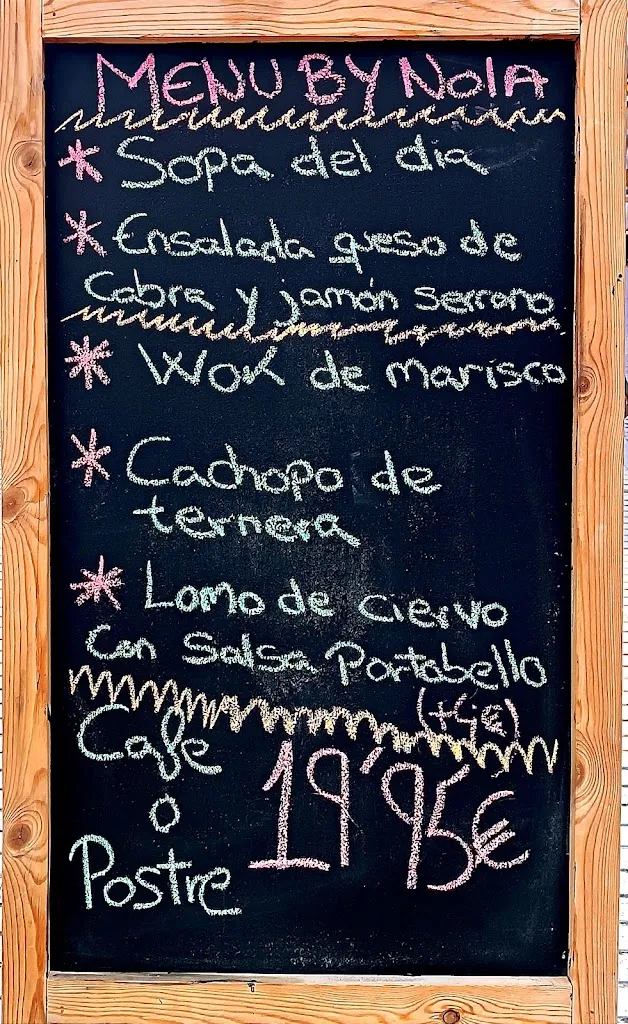 MENU BY NolA
* Sopa del dia
* Ensalada queso de
Cabra y jamón Serrano
* Wok de marisco
* Cachopo de
ternera
* Lomo de ciervo
Con Salsa Portabello
Cafe
o
Postre
19'95€